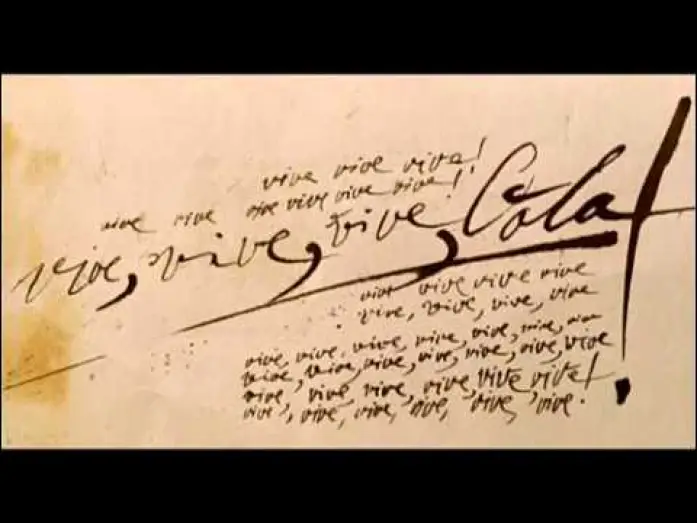 vive vive vive!
vive vive vive vive vive vive!
vive, vive, vive, Cola!
vive vive vive vive
vive, vive, vive, vive
vive, vive, vive, vive, vive, vive, vive
vive, vive, vive, vive, vive, vive, vive
vive, vive, vive, vive, vive vive!
vive, vive, vive, vive, vive, vive!